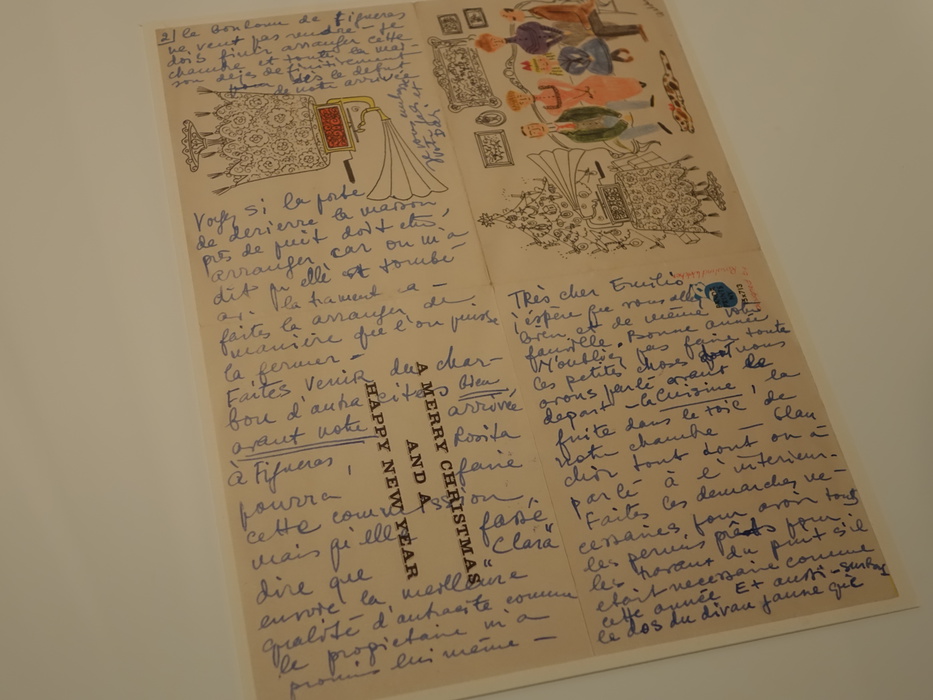 Très cher Emilio
j'espère que vous allez
bien et de même votre
famille. Bonne année
N'oubliez pas faire toute
les petites choses dont nous
avons parlé avant le
depart - la cuisine, la
fuite dans le toit, de
notre chambre -
tout dont on à
parlé à l'interieur -
Faites les demarches ne-
cessaires, pour avoir tous
les permis prêts pour
les travaux du puit s'il
etait necessaire comme
cette année Et aussi -
le dos du divan jaune que
2) le bonhomme de Figueras
ne veut pas rendre - je
dois finir arranger cette
chambre et toute la mai-
son dejà definitivement
dès le debut
de notre arrivée
Voyez si la porte
de derierre la maison
près de puit doit etre
arranger car on m'a
dit qu'elle est tombé
faites la arranger de
manière que l'on puisse
la fermer -
Faites venir du char-
bon d'autra cite bien
avant notre arrivée
à Figueras, Rosita
pourra faire
cette commission,
mais qu'elle fasse
dire que "Clara"
envoie la meilleure
qualité d'antracite comme
le propietaire m'a
promis lui même -
A MERRY CHRISTMAS
AND A
HAPPY NEW YEAR